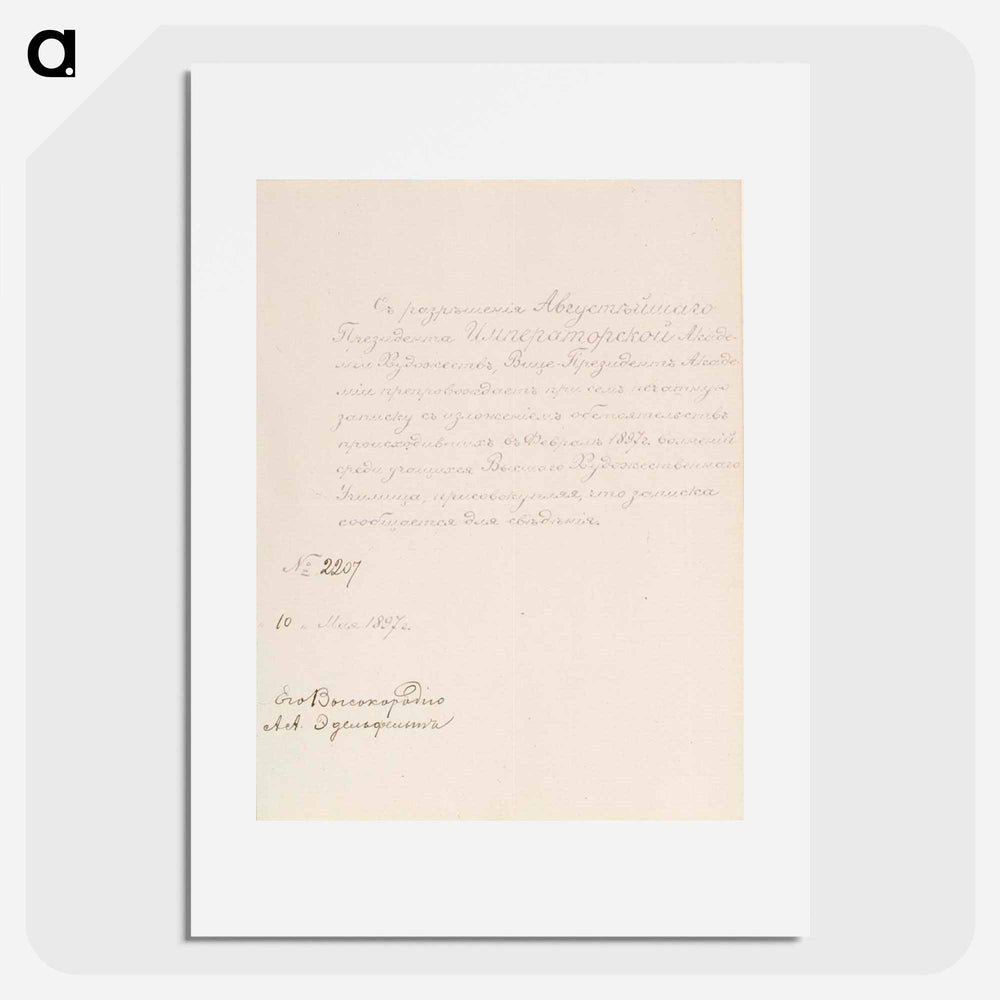 a.
Съ разрѣшенія Августѣйшаго
Президента Императорской Акаде-
міи Художествъ, Вице-Президентъ Акаде-
міи препровождаетъ при семъ печатную
записку съ изложеніемъ обстоятельствъ
происходившихъ въ Февралѣ 1897 г. волненій
среди учащихся Высшаго Художественнаго
Училища, присовокупляя, что записка
сообщается для свѣдѣнія.
№ 2207
"10" Мая 1897 г.
Его Высокородію
А.А. Эдельфельтъ